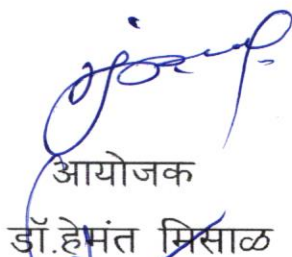 आयोजक
डॉ.हेमंत मिसाळ